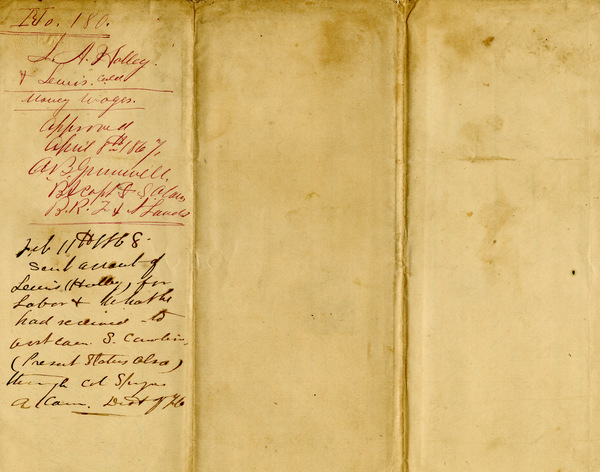 No. 180.
L. A. Holley.
& Lewis. Cold
Money Wages.
Approved
April 8th 1867,
A. B.
Bt Capt & S. A
B. R. F. & A Lands
Feb 11th 1868.
Sent account of
Lewis (Holley) for
Labor & What he
had received to
asst com. S. Carolina
(Present Status also)
through Col
A. Com. Dist of